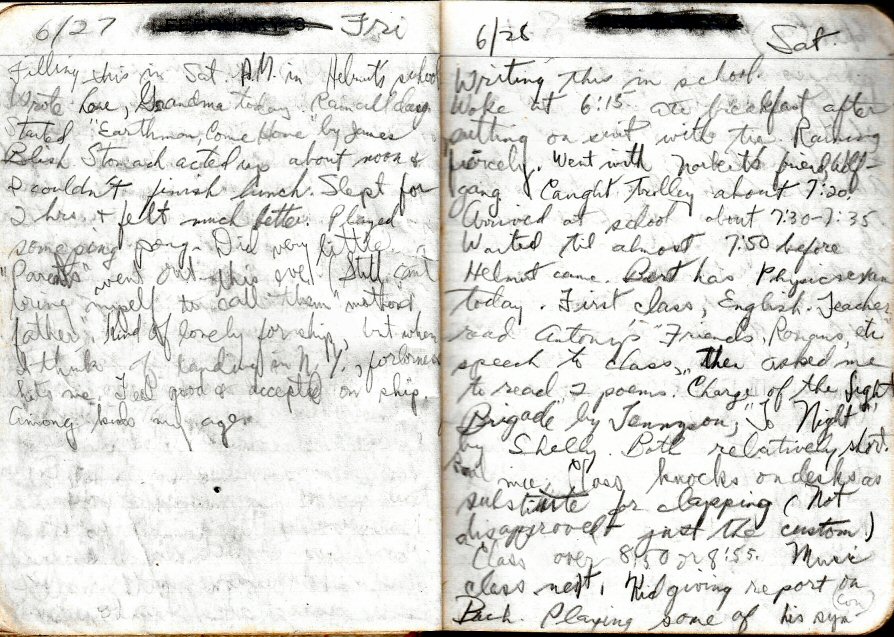 6/27 Fri
Filling this in Sat. A.M. in Helmut's school
Wrote home, Grandma today. Rained all day.
Started "Earthman, Come Home" by James
Blish. Stomach acted up about noon &
I couldn't finish lunch. Slept for
2 hrs. & felt much better. Played
some ping pong. Did very little.
"Parents" went out this eve. (Still can't
bring myself to call them "mother &
father". Kind of lonely for ship, but when
I think of landing in N.Y., forlorness
hits me. Feel good & accepted on ship.
Among kids my age.
6/28 Sat.
Writing this in school.
Woke at 6:15 ate breakfast after
putting on suit with tie. Raining
fiercely. Went with friend, Wolf-
gang. Caught trolley about 7:20.
Arrived at school about 7:30-7:35
Waited til almost 7:50 before
Helmut came. Bert has Physics exam
today. First class, English. Teacher
read Antony's "Friends, Romans, etc
speech to class, then asked me
to read 2 poems. Charge of the Light
Brigade" by Tennyson, "To Night"
by Shelly. Both relatively short.
and nice. Class knocks on desks as
substitute for clapping (Not
disapproval - just the custom.)
Class over 8:50 or 8:55. Music
class next. Kid giving report on
Bach. Playing some of his sym-
(con)